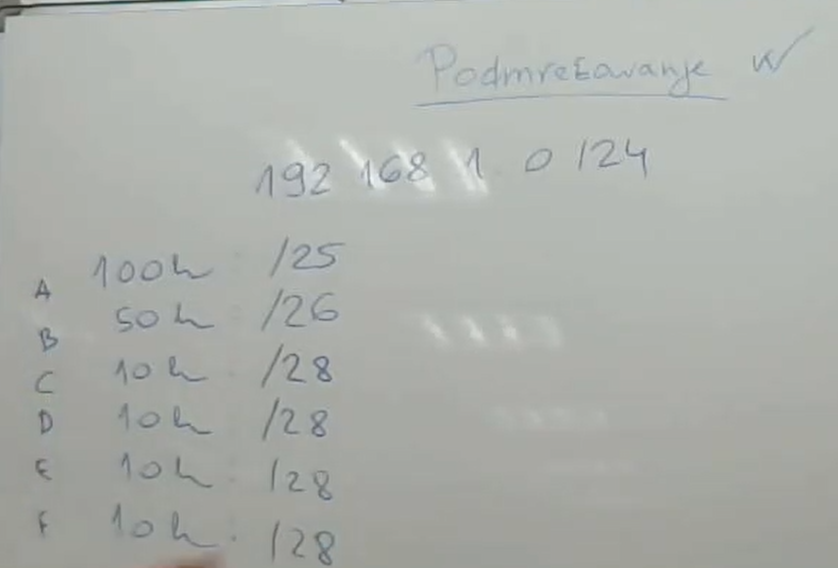 Podmrežavanje
192 168 1 0 /24
A 100h /25
B 50h /26
C 10h /28
D 10h /28
E 10h /28
F 10h /28